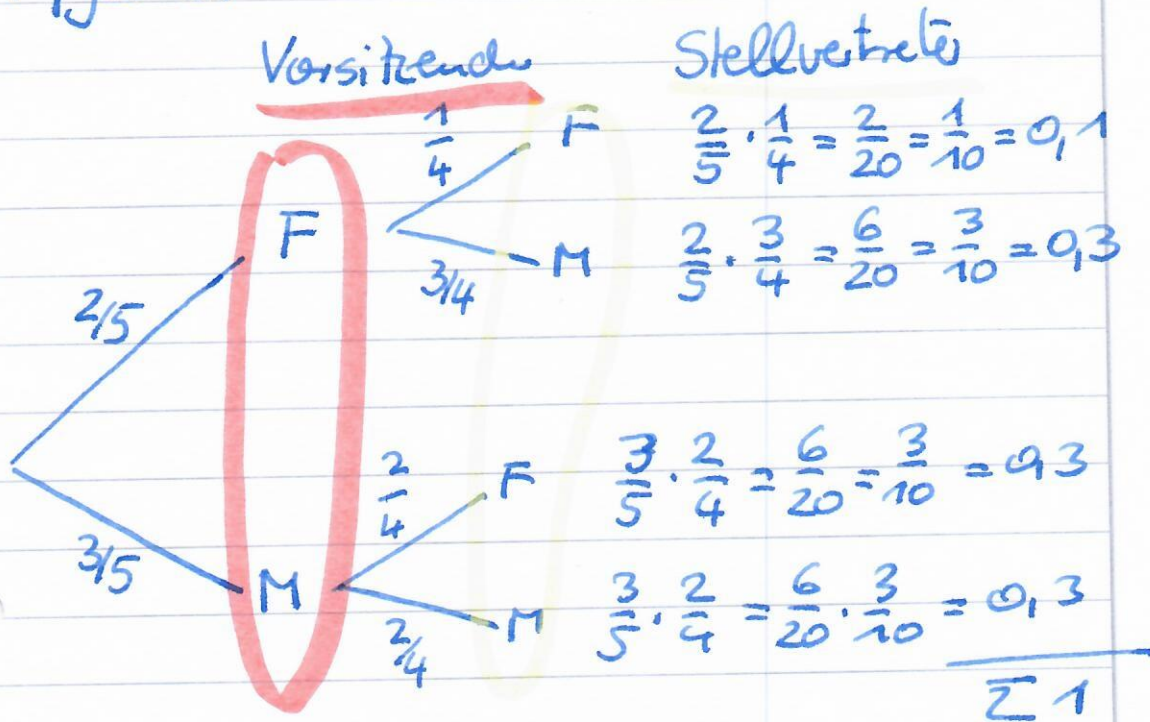 Vorsitzende Stellvertreter
1/4 F 2/5 · 1/4 = 2/20 = 1/10 = 0,1
F
3/4 M 2/5 · 3/4 = 6/20 = 3/10 = 0,3
2/5
2/4 F 3/5 · 2/4 = 6/20 = 3/10 = 0,3
3/5 M
2/4 M 3/5 · 2/4 = 6/20 · 3/10 = 0,3
Σ 1